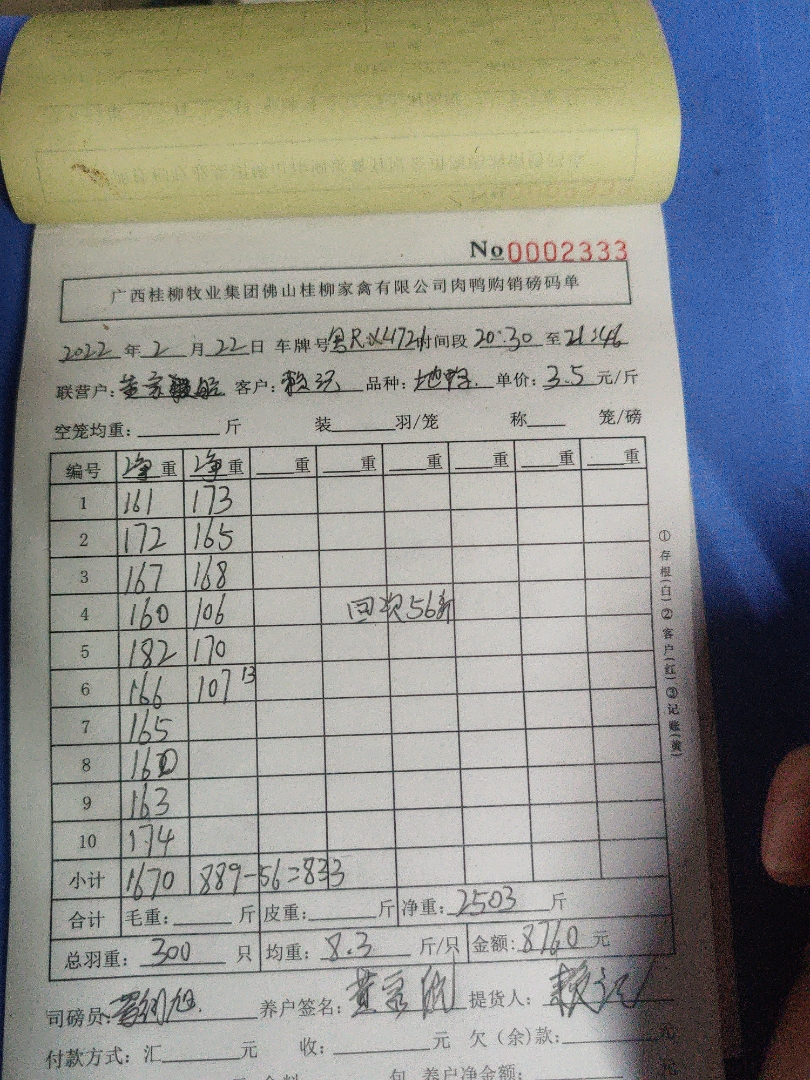 No 0002333
广西桂柳牧业集团佛山桂柳家禽有限公司肉鸭购销磅码单
2022 年 2 月 22 日 车牌号 时间段 20:30 至 21:46
联营户: 黄家 客户: 品种: 单价: 3.5 元/斤
空笼均重: 斤 装 羽/笼 称 笼/磅
编号 净重 净重 重 重 重 重 重 重
1 161 173
2 172 165
3 167 168
4 160 106 56斤
5 182 170
6 166 107 13
7 165
8 160
9 163
10 174
小计 1670 889-56=833
合计 毛重: 斤 皮重: 斤 净重: 2503 斤
总羽重: 300 只 均重: 8.3 斤/只 金额: 8760 元
司磅员: 养户签名: 黄家 提货人:
付款方式: 汇 元 收: 元 欠(余)款: 元
养户净金额: 元
①存根(白)②客户(红)③记账(黄)